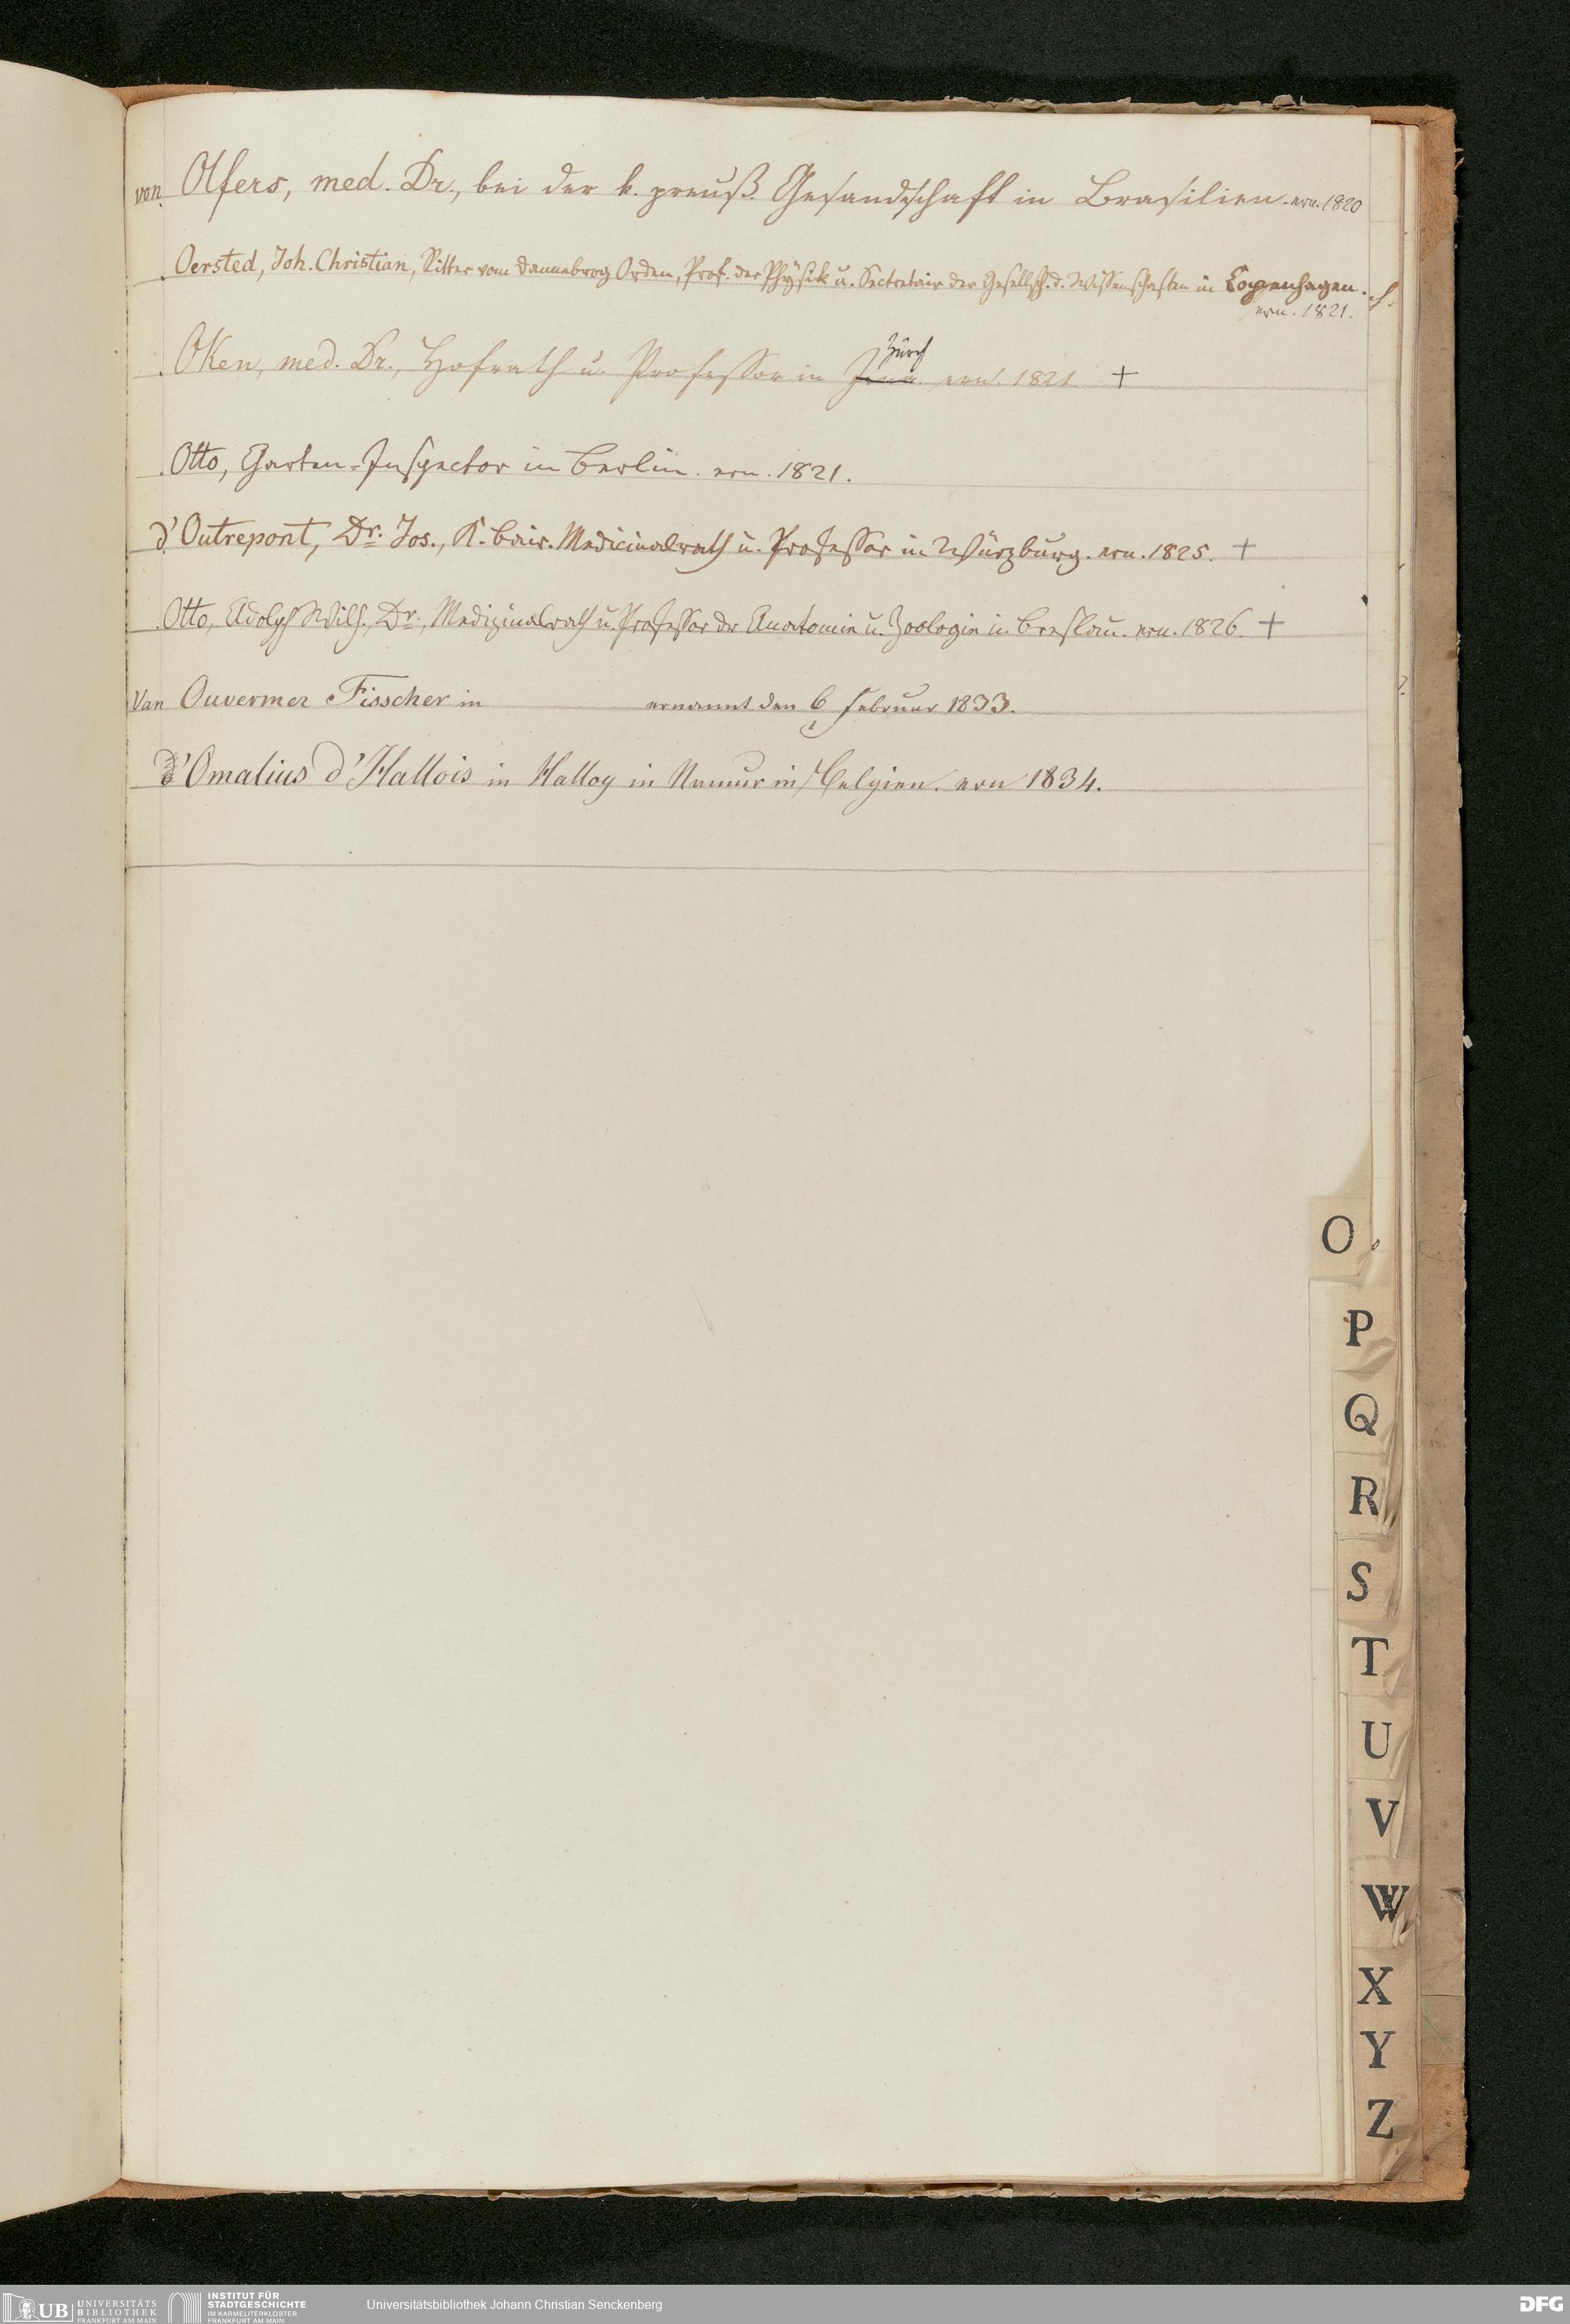 von Olfers, med. Dr., bei der k. preuß. Gesandschaft in Brasilien. ern. 1820
Oersted, Joh. Christian, Ritter vom Dannebrog Orden, Prof. der Physik u. Secretair der Gesellsch. d. Wissenschaften in Copenhagen.
ern. 1821.
Zürch
Oken, med. Dr., Hofrath u. Professor in Jena. ern. 1821. +
Otto, Garten-Inspector in Berlin. ern. 1821.
d'Outrepont, Dr. Jos., K. bair. Medicinalrath u. Professor in Würzburg. ern. 1825. +
Otto, Adolph Wilh., Dr., Medizinalrath u. Professor der Anatomie u. Zoologie in Breslau. ern. 1826. +
Van Ouvermer Fisscher in ernannt den 6 Februar 1833.
d'Omalius d'Hallois in Halloy in Namur in Belgien. ern 1834.
O
P
Q
R
S
T
U
V
W
X
Y
Z
UB UNIVERSITÄTS BIBLIOTHEK FRANKFURT AM MAIN
INSTITUT FÜR STADTGESCHICHTE IM KARMELITERKLOSTER FRANKFURT AM MAIN
Universitätsbibliothek Johann Christian Senckenberg
DFG